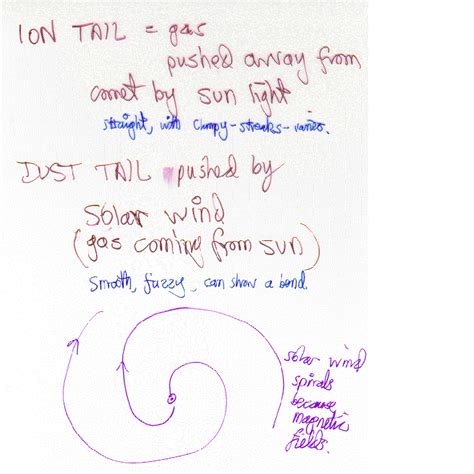 ION TAIL = gas
pushed away from
comet by sun light
straight, with clumpy-streaks-varies.
DUST TAIL pushed by
solar wind
(gas coming from sun)
Smooth, fuzzy, can show a bend.
solar wind
spirals
because
magnetic
fields.